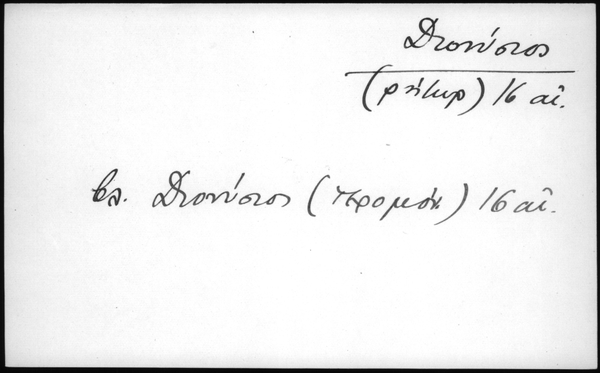 Διονύσιος
(ρήτωρ) 16 αἰ.
βλ. Διονύσιος (ἱερομόν.) 16 αἰ.